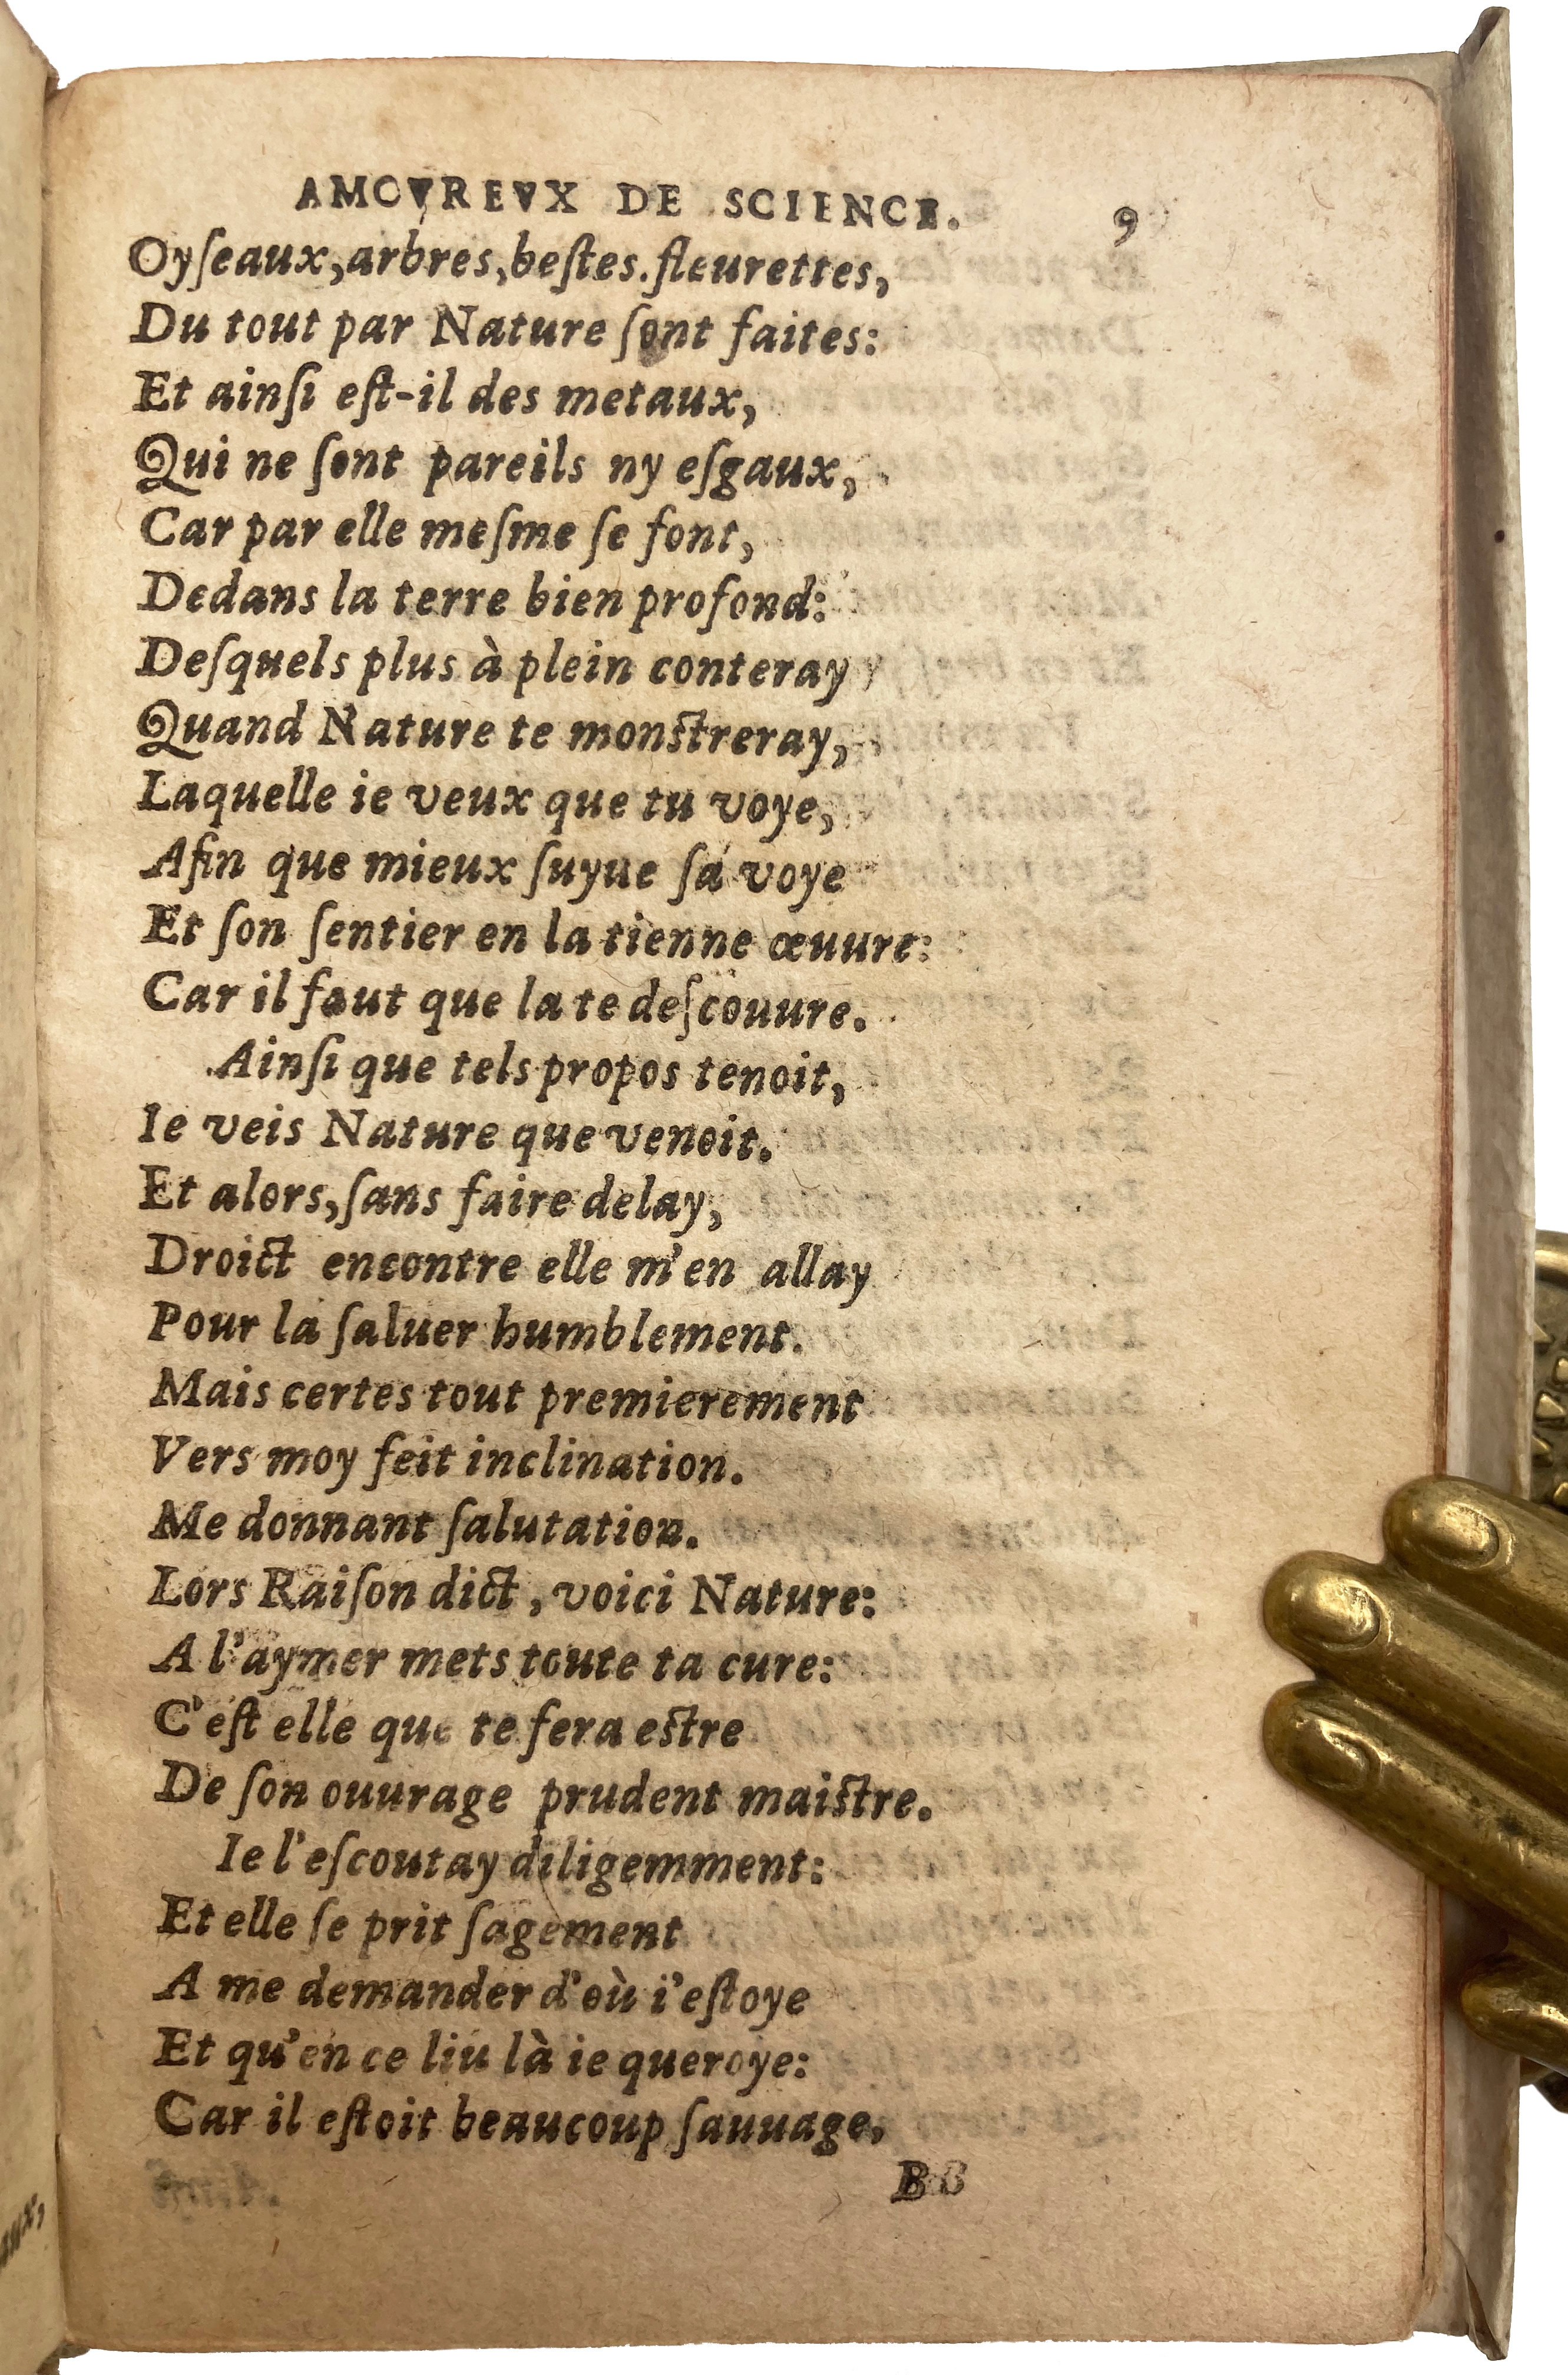 AMOVREVX DE SCIENCE. 9
Oyſeaux, arbres, beſtes. fleurettes,
Du tout par Nature ſont faites:
Et ainſi eſt-il des metaux,
Qui ne ſont pareils ny eſgaux,
Car par elle meſme ſe font,
Dedans la terre bien profond:
Deſquels plus à plein conteray
Quand Nature te monſtreray,
Laquelle ie veux que tu voye,
Afin que mieux ſuyue ſa voye
Et ſon ſentier en la tienne œuure:
Car il faut que la te deſcouure.
Ainſi que tels propos tenoit,
Ie veis Nature que venoit.
Et alors, ſans faire delay,
Droict encontre elle m'en allay
Pour la ſaluer humblement.
Mais certes tout premierement
Vers moy feit inclination.
Me donnant ſalutation.
Lors Raiſon dict, voici Nature:
A l'aymer mets toute ta cure:
C'eſt elle que te fera eſtre
De ſon ouurage prudent maiſtre.
Ie l'eſcoutay diligemment:
Et elle ſe prit ſagement
A me demander d'où i'eſtoye
Et qu'en ce liu là ie queroye:
Car il eſtoit beaucoup ſauuage,
B
aux,